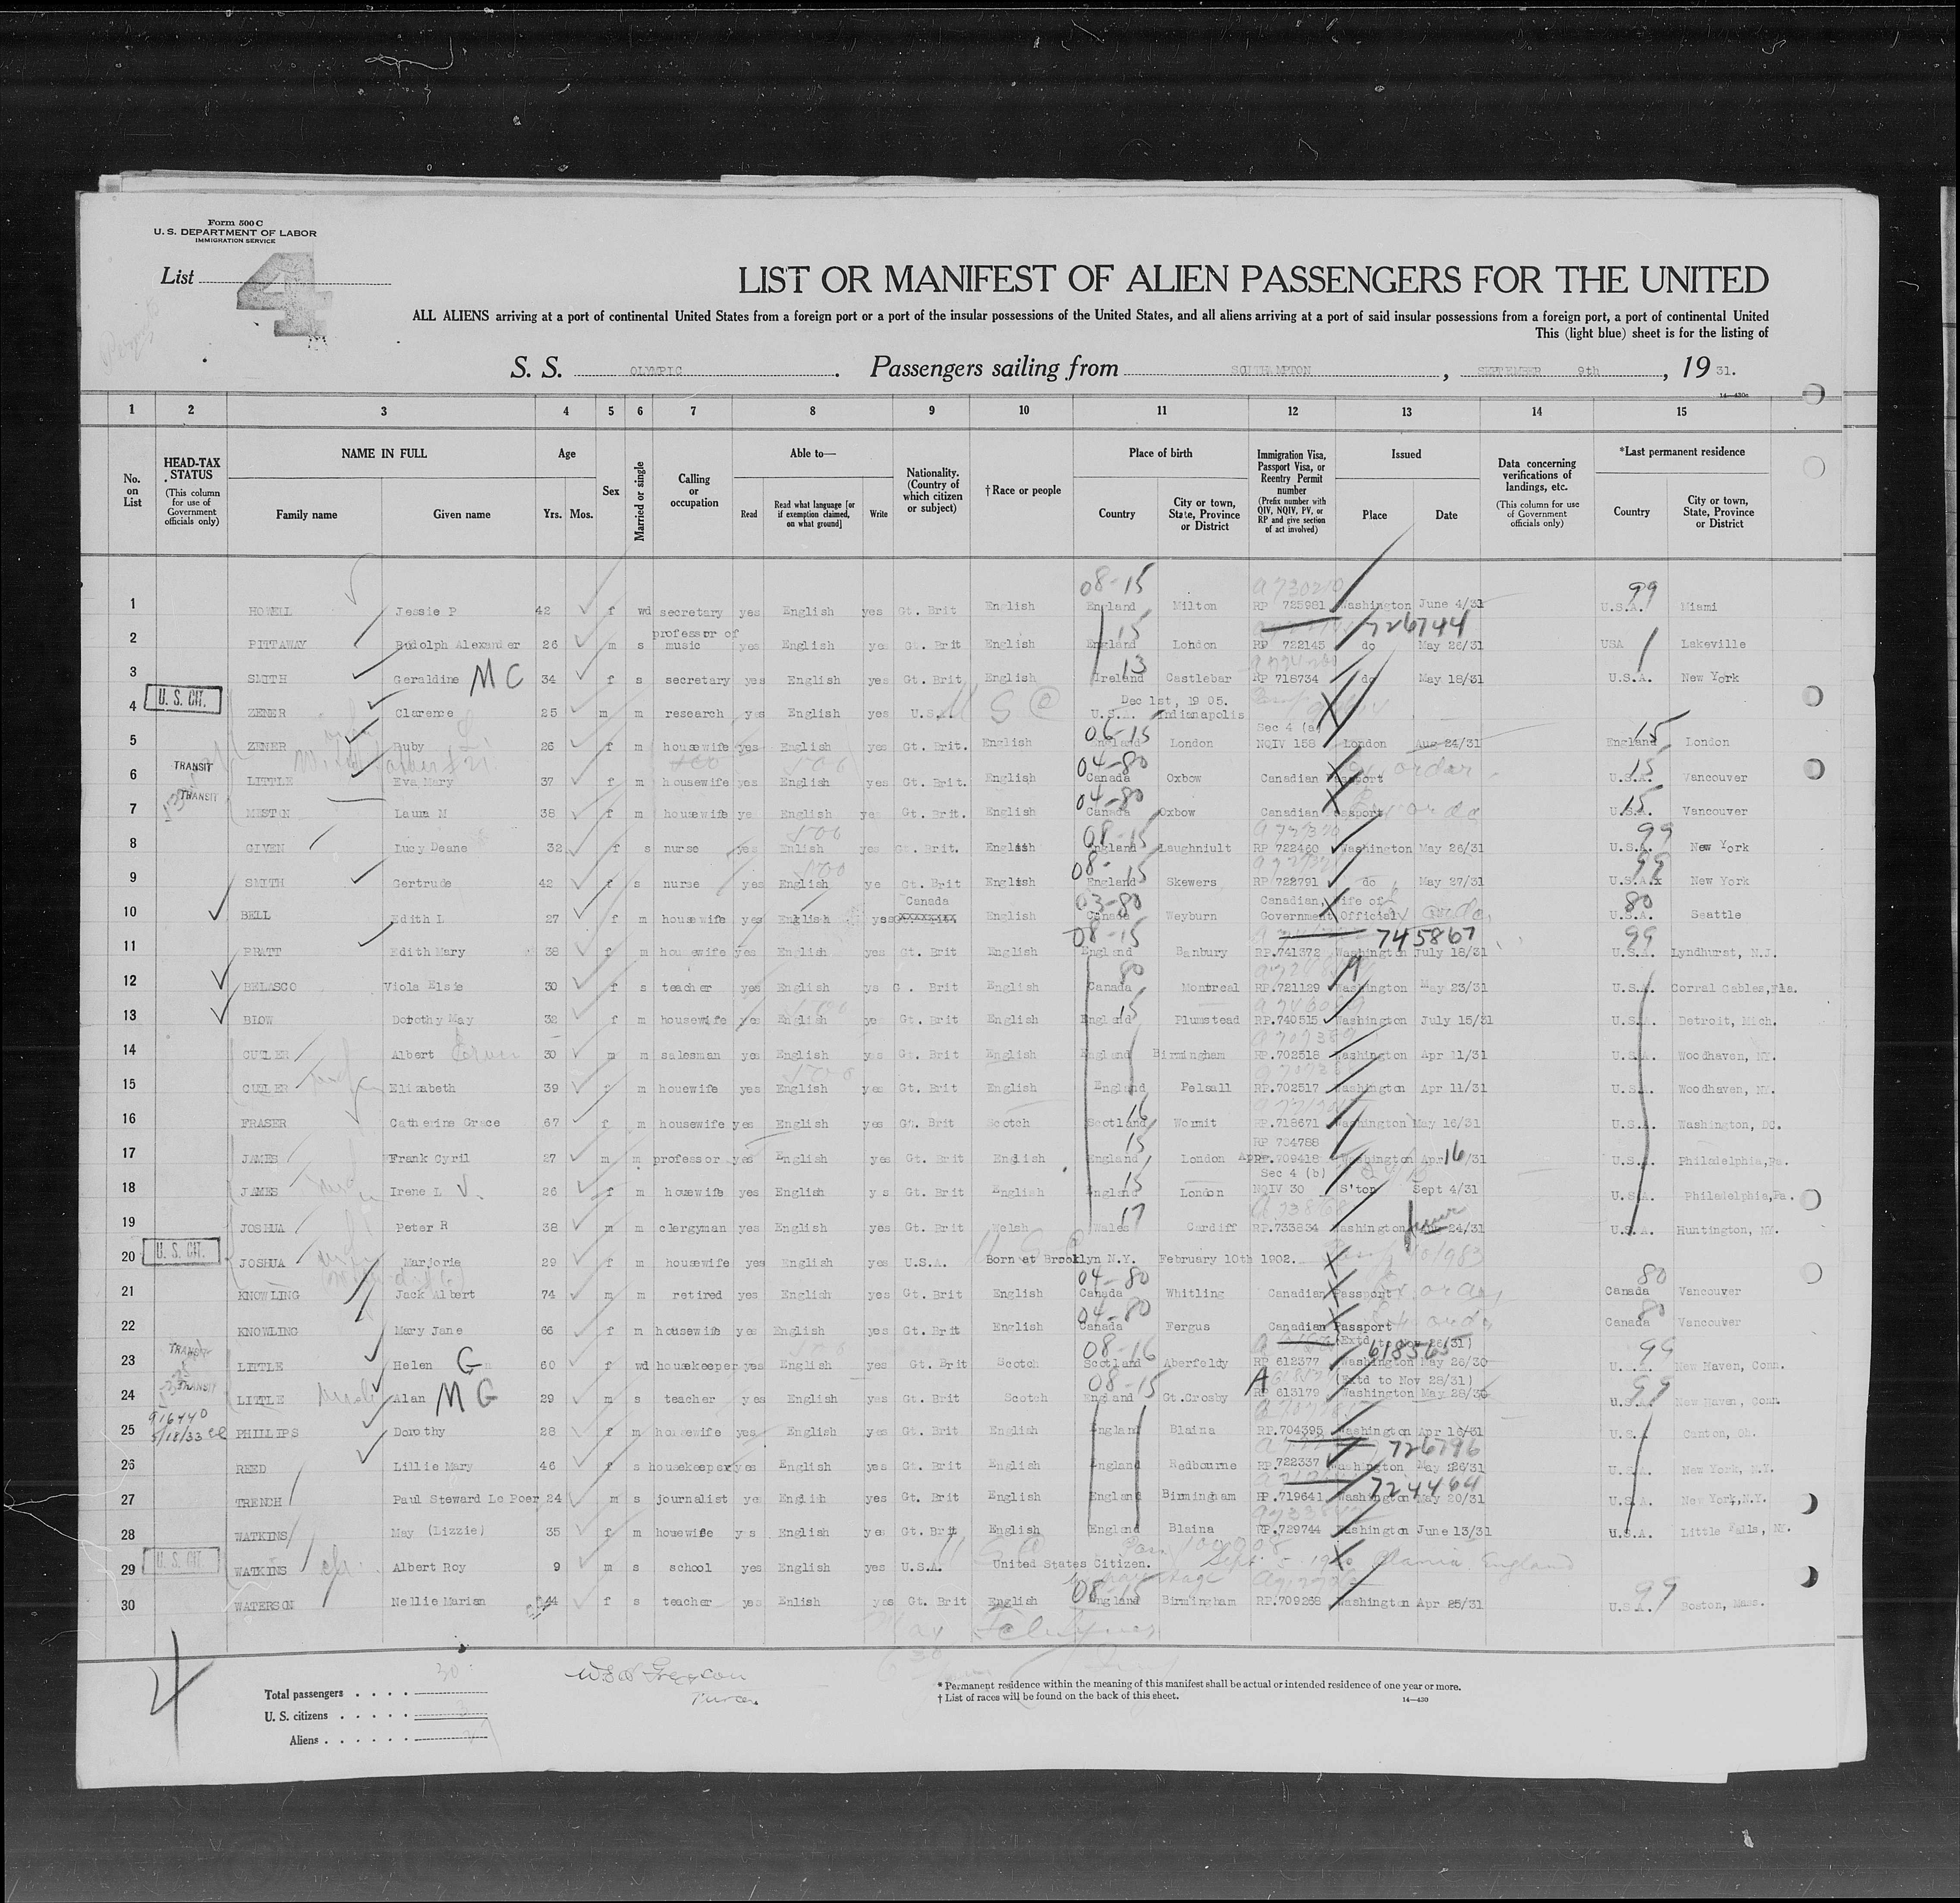 Form 500 C
U. S. DEPARTMENT OF LABOR
IMMIGRATION SERVICE
List 4
LIST OR MANIFEST OF ALIEN PASSENGERS FOR THE UNITED
ALL ALIENS arriving at a port of continental United States from a foreign port or a port of the insular possessions of the United States, and all aliens arriving at a port of said insular possessions from a foreign port, a port of continental United
This (light blue) sheet is for the listing of
S. S. OLYMPIC. Passengers sailing from SOUTHAMPTON, SEPTEMBER 9th, 19 31.
14—430c
1 2 3 4 5 6 7 8 9 10 11 12 13 14 15
No. on List
HEAD-TAX STATUS (This column for use of Government officials only)
NAME IN FULL Family name Given name
Age Yrs. Mos.
Sex
Married or single
Calling or occupation
Able to— Read Read what language [or if exemption claimed, on what ground] Write
Nationality. (Country of which citizen or subject)
†Race or people
Place of birth Country City or town, State, Province or District
Immigration Visa, Passport Visa, or Reentry Permit number (Prefix number with QIV, NQIV, PV, or RP and give section of act involved)
Issued Place Date
Data concerning verifications of landings, etc. (This column for use of Government officials only)
*Last permanent residence Country City or town, State, Province or District
1 HOWELL Jessie P 42 f wd secretary yes English yes Gt. Brit English 08-15 England Milton RP 725981 Washington June 4/31 99 U.S.A. Miami
2 PITTAWAY Rudolph Alexander 26 m s professor of music yes English yes Gt. Brit English 15 England London 726744 RP 722145 do May 26/31 USA Lakeville
3 SMITH Geraldine MC 34 f s secretary yes English yes Gt. Brit English 13 Ireland Castlebar RP 718734 do May 18/31 U.S.A. New York
4 U. S. CIT. ZENER Clarence 25 m m research yes English yes U.S.A. U S C Dec 1st, 19 05. U.S.A. Indianapolis
5 ZENER Ruby 26 f m housewife yes English yes Gt. Brit. English 06-15 England London Sec 4 (a) NQIV 158 London Aug 24/31 15 England London
6 TRANSIT LITTLE Eva Mary 37 f m housewife yes English yes Gt. Brit. English 04-80 Canada Oxbow Canadian Passport 15 U.S.A. Vancouver
7 TRANSIT MESTON Laura M 38 f m housewife ye English ye Gt. Brit. English 04-80 Canada Oxbow Canadian Passport 15 U.S.A. Vancouver
8 GIVEN Lucy Deane 32 f s nurse yes Enlish yes Gt. Brit. English 08-15 England Laughniult RP 722460 Washington May 26/31 99 U.S.A. New York
9 SMITH Gertrude 42 f s nurse yes English ye Gt. Brit English 08-15 England Skewers RP 722791 do May 27/31 99 U.S.A.x New York
10 BELL Edith L 27 f m housewife yes English yes Canada English 03-80 Canada Weyburn Canadian, Wife of Government Official 80 U.S.A. Seattle
11 PRATT Edith Mary 38 f m housewife yes English yes Gt. Brit English 08-15 England Banbury 745867 RP.741372 Washington July 18/31 99 U.S.A. Lyndhurst, N.J.
12 BELASCO Viola Elsie 30 f s teacher yes English ys G . Brit English 80 Canada Montreal RP.721129 Washington May 23/31 U.S.A. Corral Cables, Fla.
13 BLOW Dorothy May 32 f m housewife yes English ye Gt. Brit English 15 England Plumstead RP.740515 Washington July 15/31 U.S.A. Detroit, Mich.
14 CUGLER Albert 30 m m salesman yes English yes Gt. Brit English England Birmingham RP.702518 Washington Apr 11/31 U.S.A. Woodhaven, NY.
15 CUGLER Elizabeth 39 f m houewife yes English yes Gt. Brit English England Pelsall RP.702517 Washington Apr 11/31 U.S.A. Woodhaven, NY.
16 FRASER Catherine Grace 67 f m housewife yes English yes Gt. Brit Scotch 16 Scotland Wormit RP.718671 Washington May 16/31 U.S.A. Washington, DC.
17 JAMES Frank Cyril 27 m m professor yes English yes Gt. Brit English 15 England London RP 704788 RP.709418 Washington Apr 16/31 U.S.A. Philadelphia, Pa.
18 JAMES Irene L 26 f m housewife yes English y s Gt. Brit English 15 England London Sec 4 (b) NQIV 30 S'ton Sept 4/31 U.S.A. Philadelphia, Pa.
19 JOSHUA Peter R 38 m m clergyman yes English yes Gt. Brit Welsh 17 Wales Cardiff RP.733834 Washington June 24/31 U.S.A. Huntington, NY.
20 U. S. CIT. JOSHUA Marjorie 29 f m housewife yes English yes U.S.A. Born at Brooklyn N.Y. February 10th 1902.
21 KNOWLING Jack Albert 74 m m retired yes English yes Gt. Brit English 04-80 Canada Whitling Canadian Passport 80 Canada Vancouver
22 KNOWLING Mary Jane 66 f m housewife yes English yes Gt. Brit English 04-80 Canada Fergus Canadian Passport 80 Canada Vancouver
23 TRANSIT LITTLE Helen G 60 f wd housekeeper yes English yes Gt. Brit Scotch 08-16 Scotland Aberfeldy (Extd to Nov 26/31) 618565 RP 612377 Washington May 26/30 99 U.S.A. New Haven, Conn.
24 TRANSIT LITTLE Alan MG 29 m s teacher yes English yes Gt. Brit Scotch 08-15 England Gt.Crosby A (Extd to Nov 28/31) RP 613179 Washington May 28/30 99 U.S.A. New Haven, Conn.
916440
5/18/33
25 PHILLIPS Dorothy 28 f m housewife yes English yes Gt. Brit English England Blaina RP.704395 Washington Apr 16/31 U.S.A Canton, Oh.
26 REED Lillie Mary 46 f s housekeeper yes English yes Gt. Brit English England Redbourne 726796 RP.722337 Washington May 26/31 U.S.A. New York, N.Y.
27 TRENCH Paul Steward Le Poer 24 m s journalist yes English yes Gt. Brit English England Birmingham 724464 RP.719641 Washington May 20/31 U.S.A. New York, N.Y.
28 WATKINS May (Lizzie) 35 f m housewife y s English yes Gt. Brit English England Blaina RP.729744 Washington June 13/31 U.S.A. Little Falls, NY.
29 U. S. CIT WATKINS Albert Roy 9 m s school yes English yes U.S.A. United States Citizen.
30 WATERSON Nellie Marian 44 f s teacher yes Enlish yes Gt. Brit English 08-15 England Birmingham RP.709268 Washington Apr 25/31 99 U.S.A. Boston, Mass.
4
Total passengers . . . . 30
U. S. citizens . . . . . 3
Aliens . . . . . . 27
* Permanent residence within the meaning of this manifest shall be actual or intended residence of one year or more.
† List of races will be found on the back of this sheet.
14—430